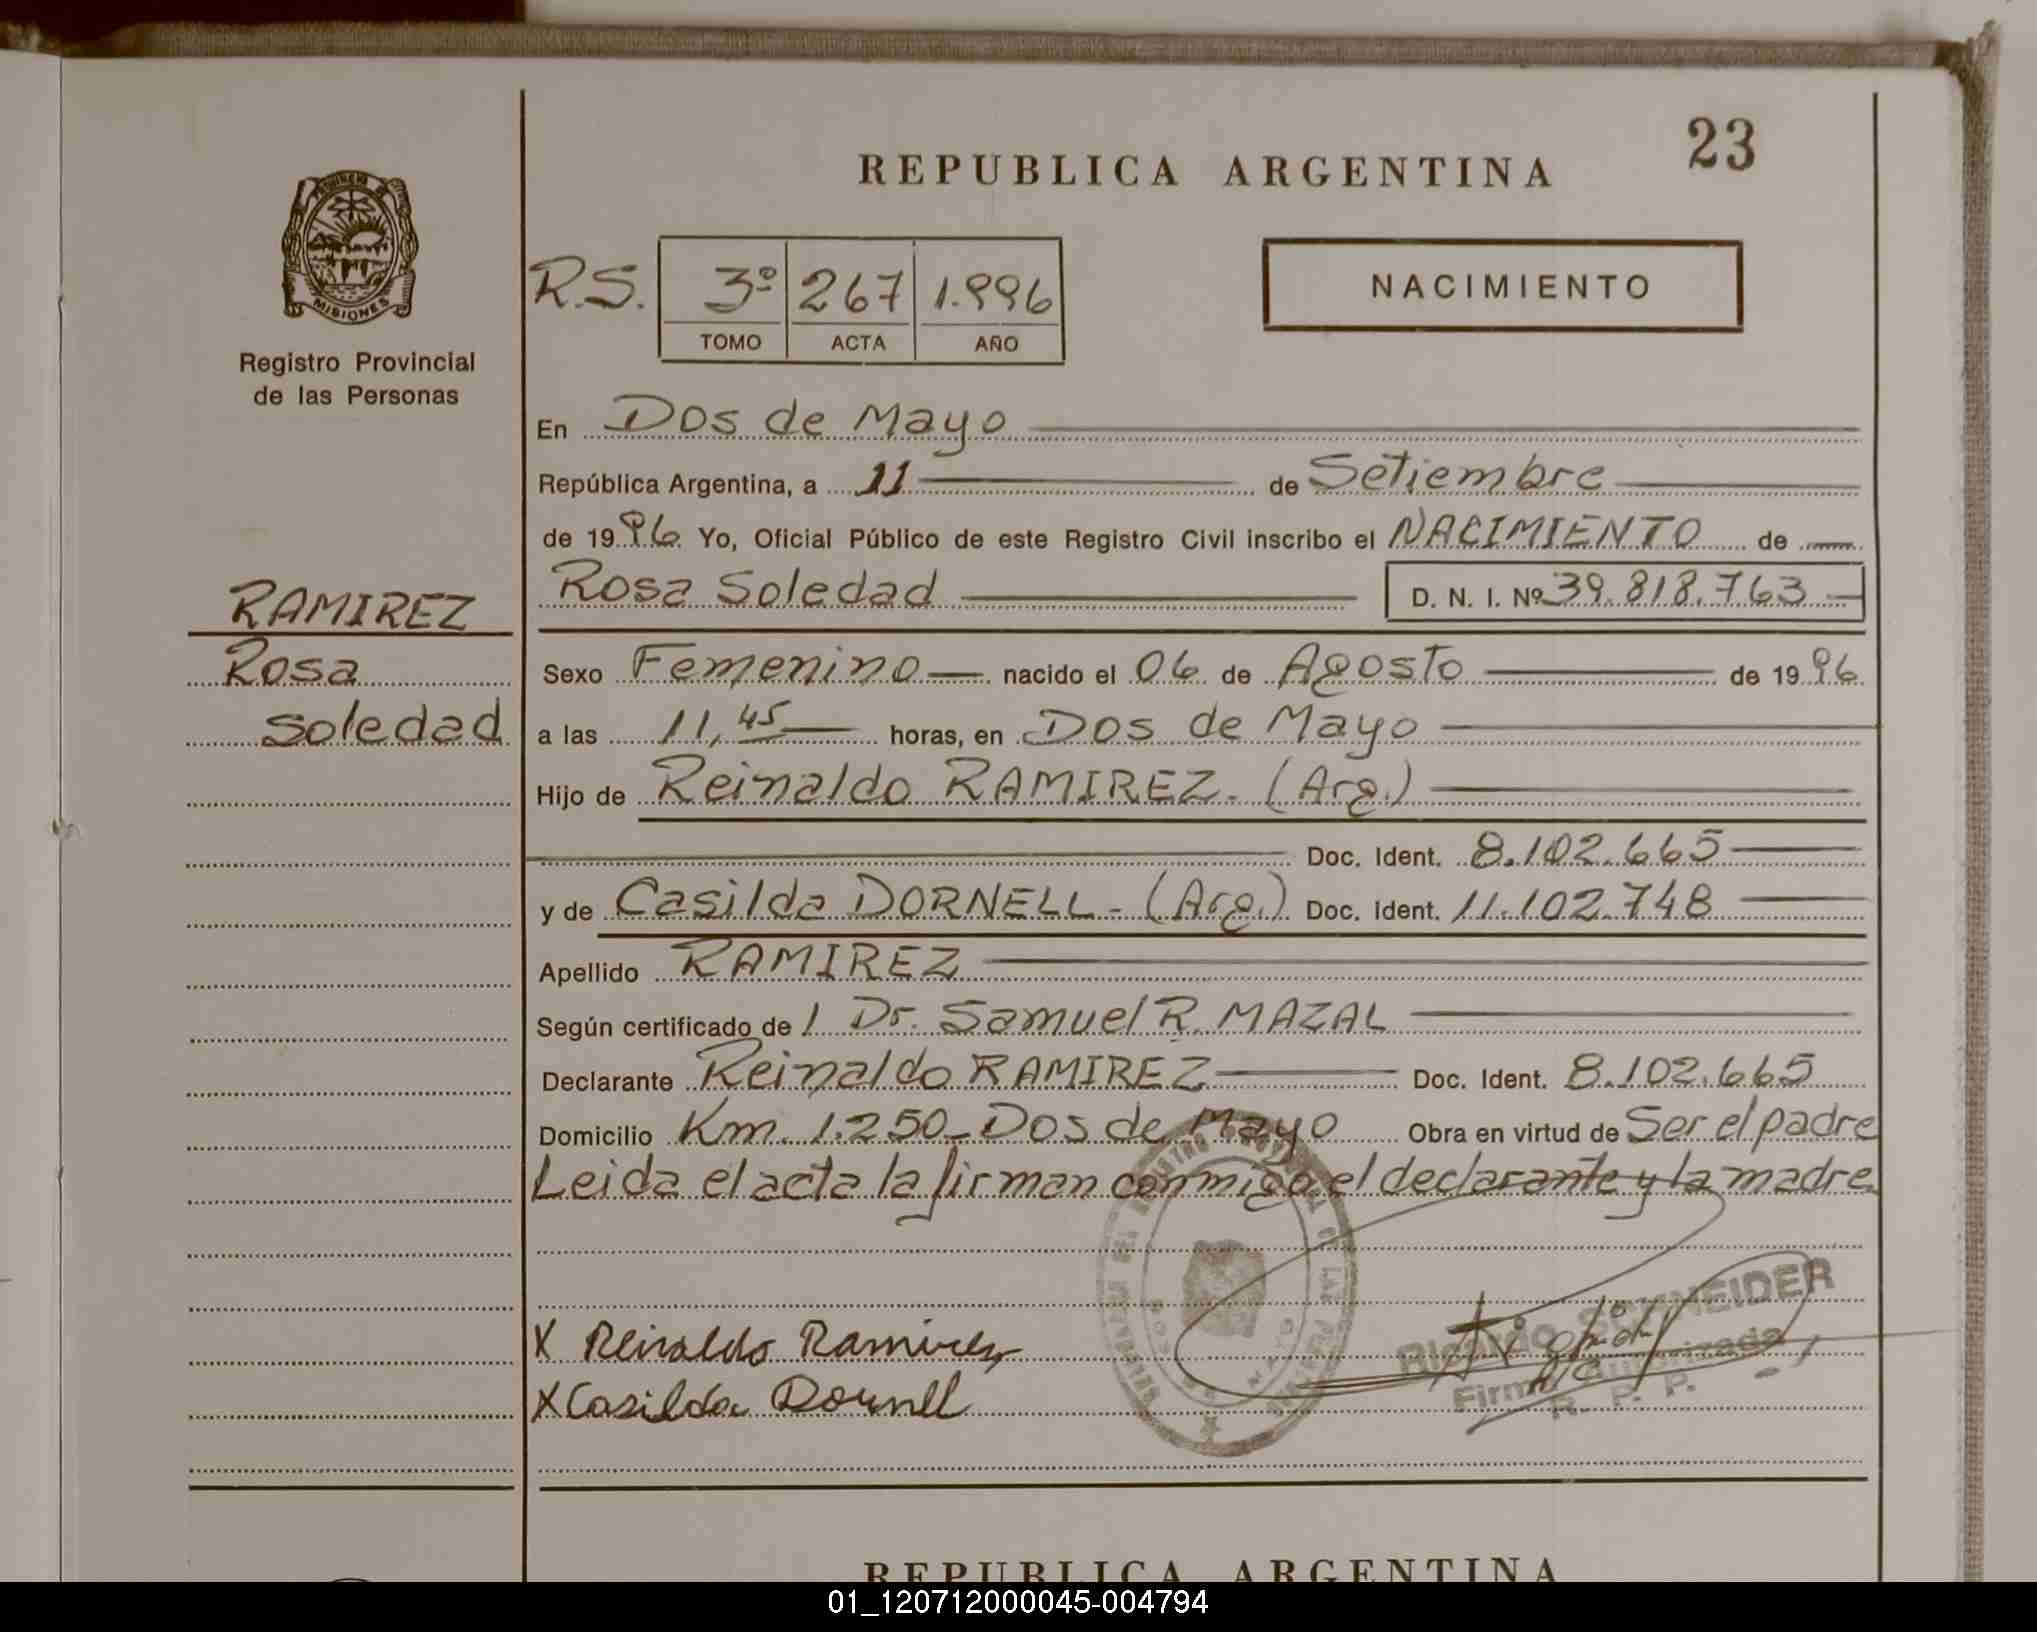 23
REPUBLICA ARGENTINA
MISIONES
Registro Provincial
de las Personas
R.S. 3º 267 1.996
TOMO ACTA AÑO
NACIMIENTO
En Dos de Mayo
República Argentina, a 11 de Setiembre
de 1996 Yo, Oficial Público de este Registro Civil inscribo el NACIMIENTO de
Rosa Soledad D. N. I. Nº 39.818.763
RAMIREZ
Rosa
Soledad
Sexo Femenino nacido el 06 de Agosto de 1996
a las 11,45 horas, en Dos de Mayo
Hijo de Reinaldo RAMIREZ. (Arg.)
Doc. Ident. 8.102.665
y de Casilda DORNELL - (Arg.) Doc. Ident. 11.102.748
Apellido RAMIREZ
Según certificado de / Dr. Samuel R. MAZAL
Declarante Reinaldo RAMIREZ Doc. Ident. 8.102.665
Domicilio Km. 1.250 - Dos de Mayo Obra en virtud de Ser el padre
Leida el acta la firman conmigo el declarante y la madre
X Reinaldo Ramirez
X Casilda Dornell
Ricardo SCHNEIDER
Firma Autorizada
R. P. P.
REPUBLICA ARGENTINA
01_120712000045-004794